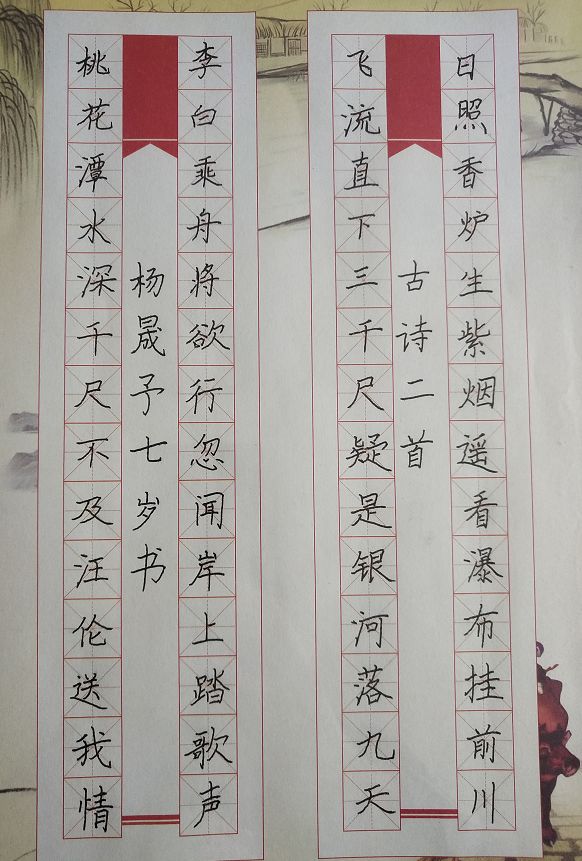 日照香炉生紫烟遥看瀑布挂前川
古诗二首
飞流直下三千尺疑是银河落九天
李白乘舟将欲行忽闻岸上踏歌声
杨晟予七岁书
桃花潭水深千尺不及汪伦送我情